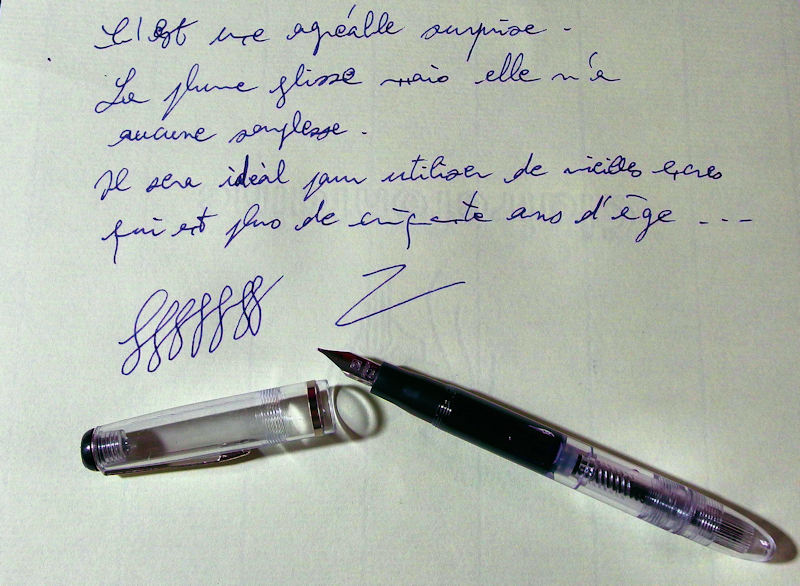 C'est une agréable surprise.
La plume glisse mais elle n'a
aucune souplesse.
Il sera idéal pour utiliser de vieilles encres
qui est plus de cinquante ans d'âge ...